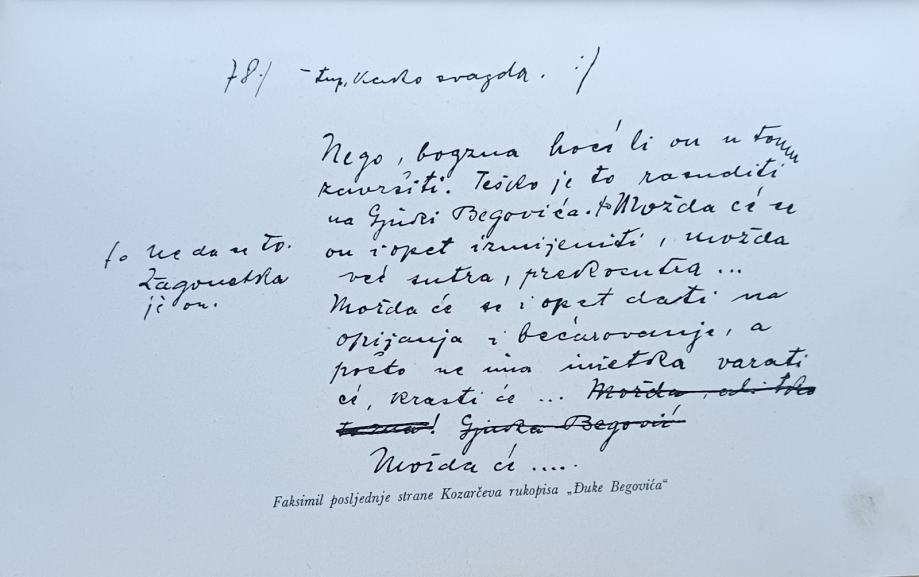 78./ – svagda. :/
Nego, bogzna hoće li on u tomu
završiti. Teško je to rasuditi
na Gjuki Begovića. Možda će se
on i opet izmijeniti, možda
već sutra, prekosutra ...
Možda će se i opet dati na
opijanja i bećarovanje, a
pošto ne ima imetka varati
će, krasti će ... Možda, ali tko
to zna! Gjuka Begović
Možda će .....
Ne da se to.
Zagonetka
je on.
Faksimil posljednje strane Kozarčeva rukopisa „Đuke Begovića“